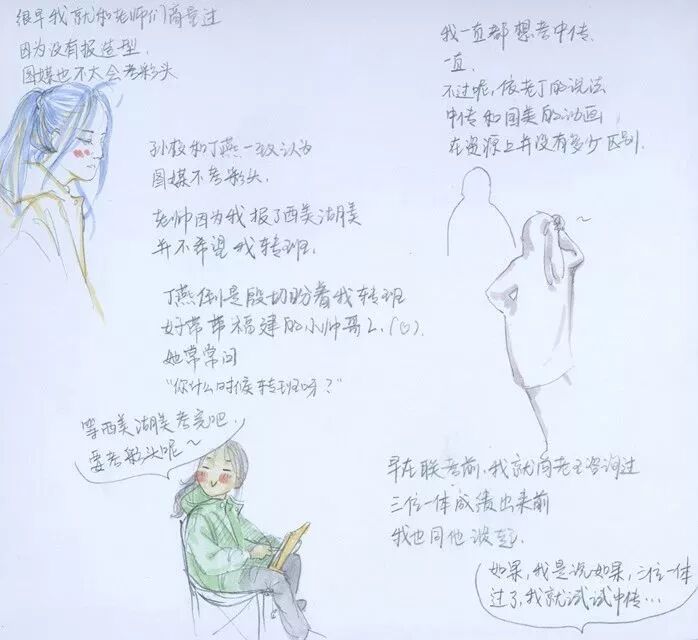 很早我就和老师们商量过
因为没有报造型.
图媒也不太会考彩头
孙校和丁燕一致认为
图媒不考彩头.
老帅因为我报了西美湖美
并不希望我转班.
丁燕倒是殷切盼着我转班
好带带福建的小帅哥
她常常问
“你什么时候转班呀?”
等西美湖美考完吧.
要考彩头呢~
我一直都想考中传.
一直.
不过呢,依老丁的说法
中传和国美的动画
在资源上并没有多少区别.
早在联考前,我就向老王咨询过
三位一体成绩出来前
我也同他
如果,我是说如果,三位一体
过了,我就试试中传...